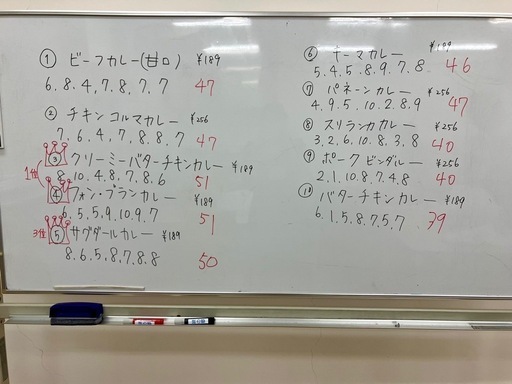 ① ビーフカレー(甘口) ¥189
6.8.4,7.8,7.7 47
② チキンコルマカレー ¥256
7,6,4,7,8,8,7 47
1位
③ クリーミーバターチキンカレー ¥189
8,10,4,8,7,8,6 51
④ フォン・ブランカレー ¥189
6.5.5,9,10,9,7 51
3位 ⑤ サグダールカレー ¥189
8.6.5,8,7,8,8 50
⑥ キーマカレー ¥189
5.4.5.8.9,7,8 46
⑦ パネーンカレー ¥256
4,9,5,10.2.8.9 47
⑧ スリランカカレー ¥256
3,2,6,10.8,3,8 40
⑨ ポークビンダルー ¥256
2,1,10,8,7,4,8 40
⑩ バターチキンカレー ¥189
6,1,5,8,7,5,7 39